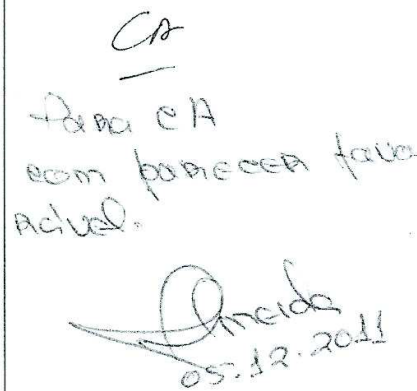 CA
Para CA
com parecer favo
rável.
Almeida
05.12.2011